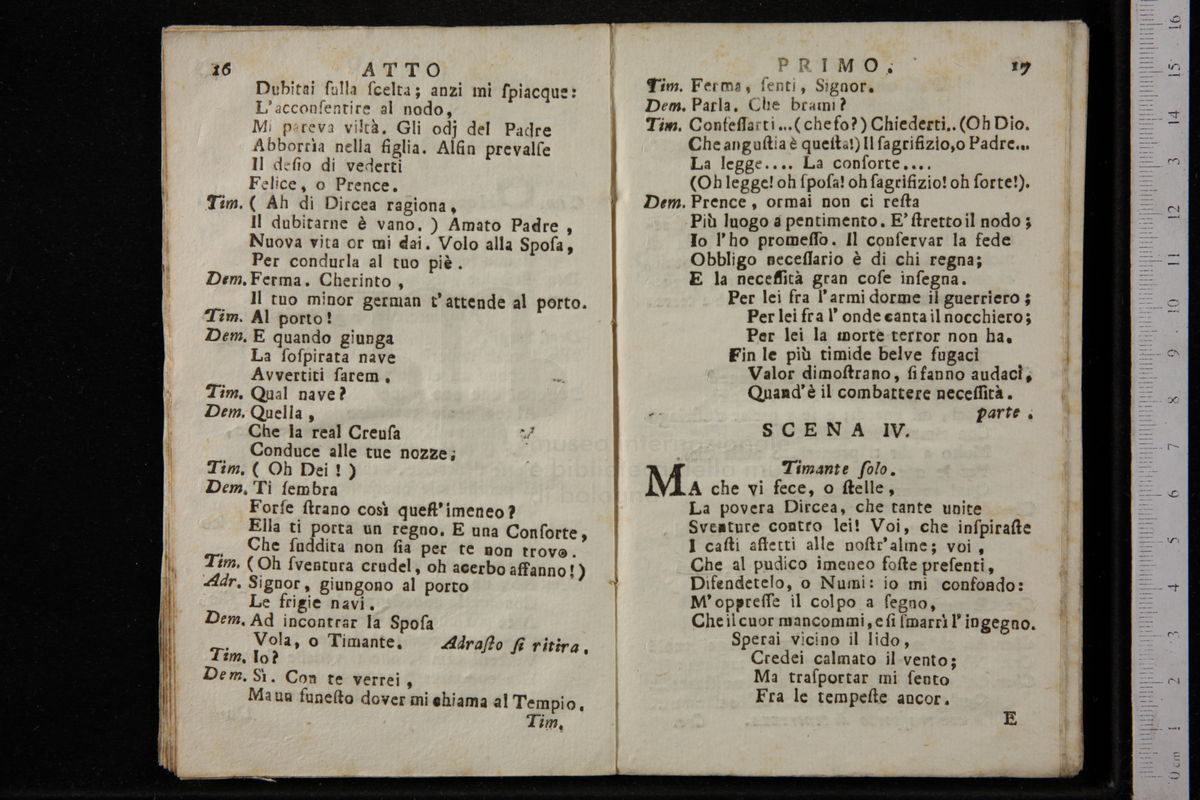 16
ATTO
Dubitai ſulla ſcelta; anzi mi ſpiacque:
L'acconſentire al nodo,
Mi pareva viltà. Gli odj del Padre
Abborrìa nella figlia. Alfin prevalſe
Il deſio di vederti
Felice, o Prence.
Tim. ( Ah di Dircea ragiona,
Il dubitarne è vano. ) Amato Padre,
Nuova vita or mi dai. Volo alla Spoſa,
Per condurla al tuo piè.
Dem. Ferma. Cherinto,
Il tuo minor german t'attende al porto.
Tim. Al porto!
Dem. E quando giunga
La ſoſpirata nave
Avvertiti ſarem.
Tim. Qual nave?
Dem. Quella,
Che la real Creuſa
Conduce alle tue nozze;
Tim. ( Oh Dei ! )
Dem. Ti ſembra
Forſe ſtrano così queſt'imeneo?
Ella ti porta un regno. E una Conſorte,
Che ſuddita non ſia per te non trovo.
Tim. ( Oh ſventura crudel, oh acerbo affanno! )
Adr. Signor, giungono al porto
Le frigie navi.
Dem. Ad incontrar la Spoſa
Vola, o Timante. Adraſto ſi ritira.
Tim. Io?
Dem. Sì. Con te verrei,
Ma un funeſto dover mi chiama al Tempio.
Tim.
PRIMO.
17
Tim. Ferma, ſenti, Signor.
Dem. Parla. Che brami?
Tim. Confeſſarti... (che fo?) Chiederti.. (Oh Dio.
Che anguſtia è queſta!) Il ſagrifizio, o Padre...
La legge.... La conſorte....
(Oh legge! oh ſpoſa! oh ſagrifizio! oh ſorte!).
Dem. Prence, ormai non ci reſta
Più luogo a pentimento. E' ſtretto il nodo;
Io l'ho promeſſo. Il conſervar la fede
Obbligo neceſſario è di chi regna;
E la neceſſità gran coſe inſegna.
Per lei fra l'armi dorme il guerriero;
Per lei fra l'onde canta il nocchiero;
Per lei la morte terror non ha.
Fin le più timide belve fugaci
Valor dimoſtrano, ſi fanno audaci,
Quand'è il combattere neceſſità.
parte.
SCENA IV.
Timante ſolo.
MA che vi fece, o ſtelle,
La povera Dircea, che tante unite
Sventure contro lei! Voi, che inſpiraſte
I caſti affetti alle noſtr'alme; voi,
Che al pudico imeneo foſte preſenti,
Difendetelo, o Numi: io mi confondo:
M'oppreſſe il colpo a ſegno,
Che il cuor mancommi, e ſi ſmarrì l'ingegno.
Sperai vicino il lido,
Credei calmato il vento;
Ma traſportar mi ſento
Fra le tempeſte ancor.
E